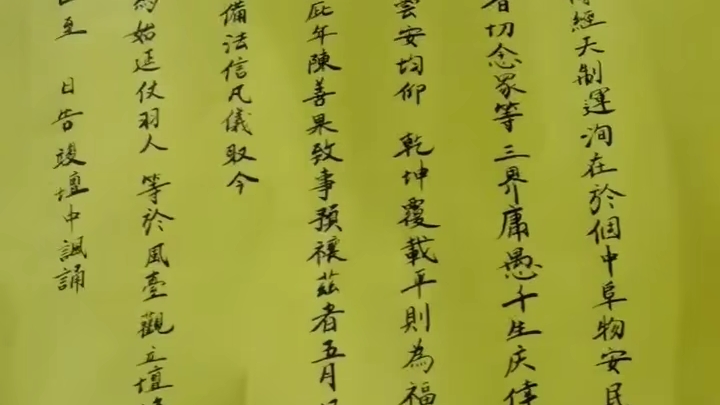 經天制運洵在於個中阜物安民
切念眾等三界庸愚千生庆倖
雲安均仰 乾坤覆載平則為福
庇年陳善果致事預禳茲者五月
備法信凡儀取今
為始延仗羽人 等於風臺觀立壇
至 日告竣壇中諷誦